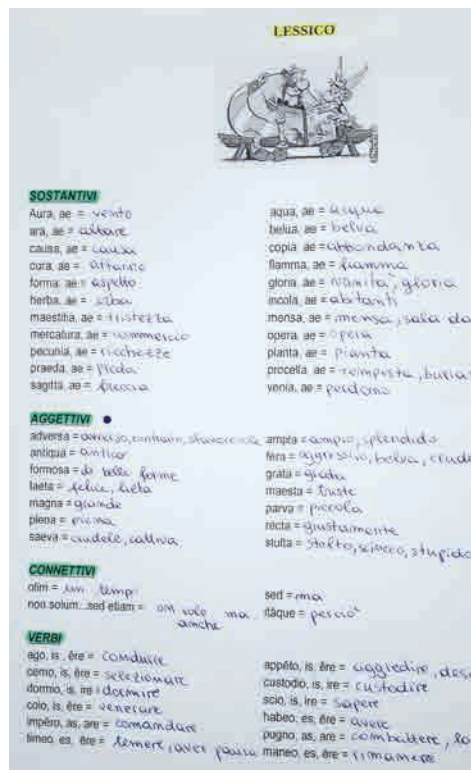 LESSICO
SOSTANTIVI
Aura, ae = vento
ara, ae = altare
causa, ae = causa
cura, ae = affanno
forma, ae = aspetto
herba, ae = erba
maestitia, ae = tristezza
mercatura, ae = commercio
pecunia, ae = ricchezze
praeda, ae = preda
sagitta, ae = freccia
aqua, ae = acqua
belua, ae = belva
copia, ae = abbondanza
flamma, ae = fiamma
gloria, ae = vanità, gloria
incola, ae = abitanti
mensa, ae = mensa, sala da
opera, ae = opera
planta, ae = pianta
procella, ae = tempesta,
venia, ae = perdono
AGGETTIVI
adversa = avverso, contrario,
antiqua = antico
formosa = di belle forme
laeta = felice, lieta
magna = grande
plena = piena
saeva = crudele, cattiva
ampla = ampio, splendido
fera = aggressivo, belva,
grata = grata
maesta = triste
parva = piccola
recta = giustamente
stulta = stolto, sciocco, stupido
CONNETTIVI
olim = un tempo
non solum...sed etiam = on solo ma
anche
sed = ma
itàque = perciò
VERBI
ago, is, ĕre = condurre
cerno, is, ĕre = selezionare
dormio, is, ire = dormire
colo, is, ĕre = venerare
impĕro, as, are = comandare
timeo, es, ēre = temere, aver paura
appĕto, is, ĕre = aggredire,
custodio, is, ire = custodire
scio, is, ire = sapere
habeo, es, ēre = avere
pugno, as, are = combattere,
maneo, es, ēre = rimanere